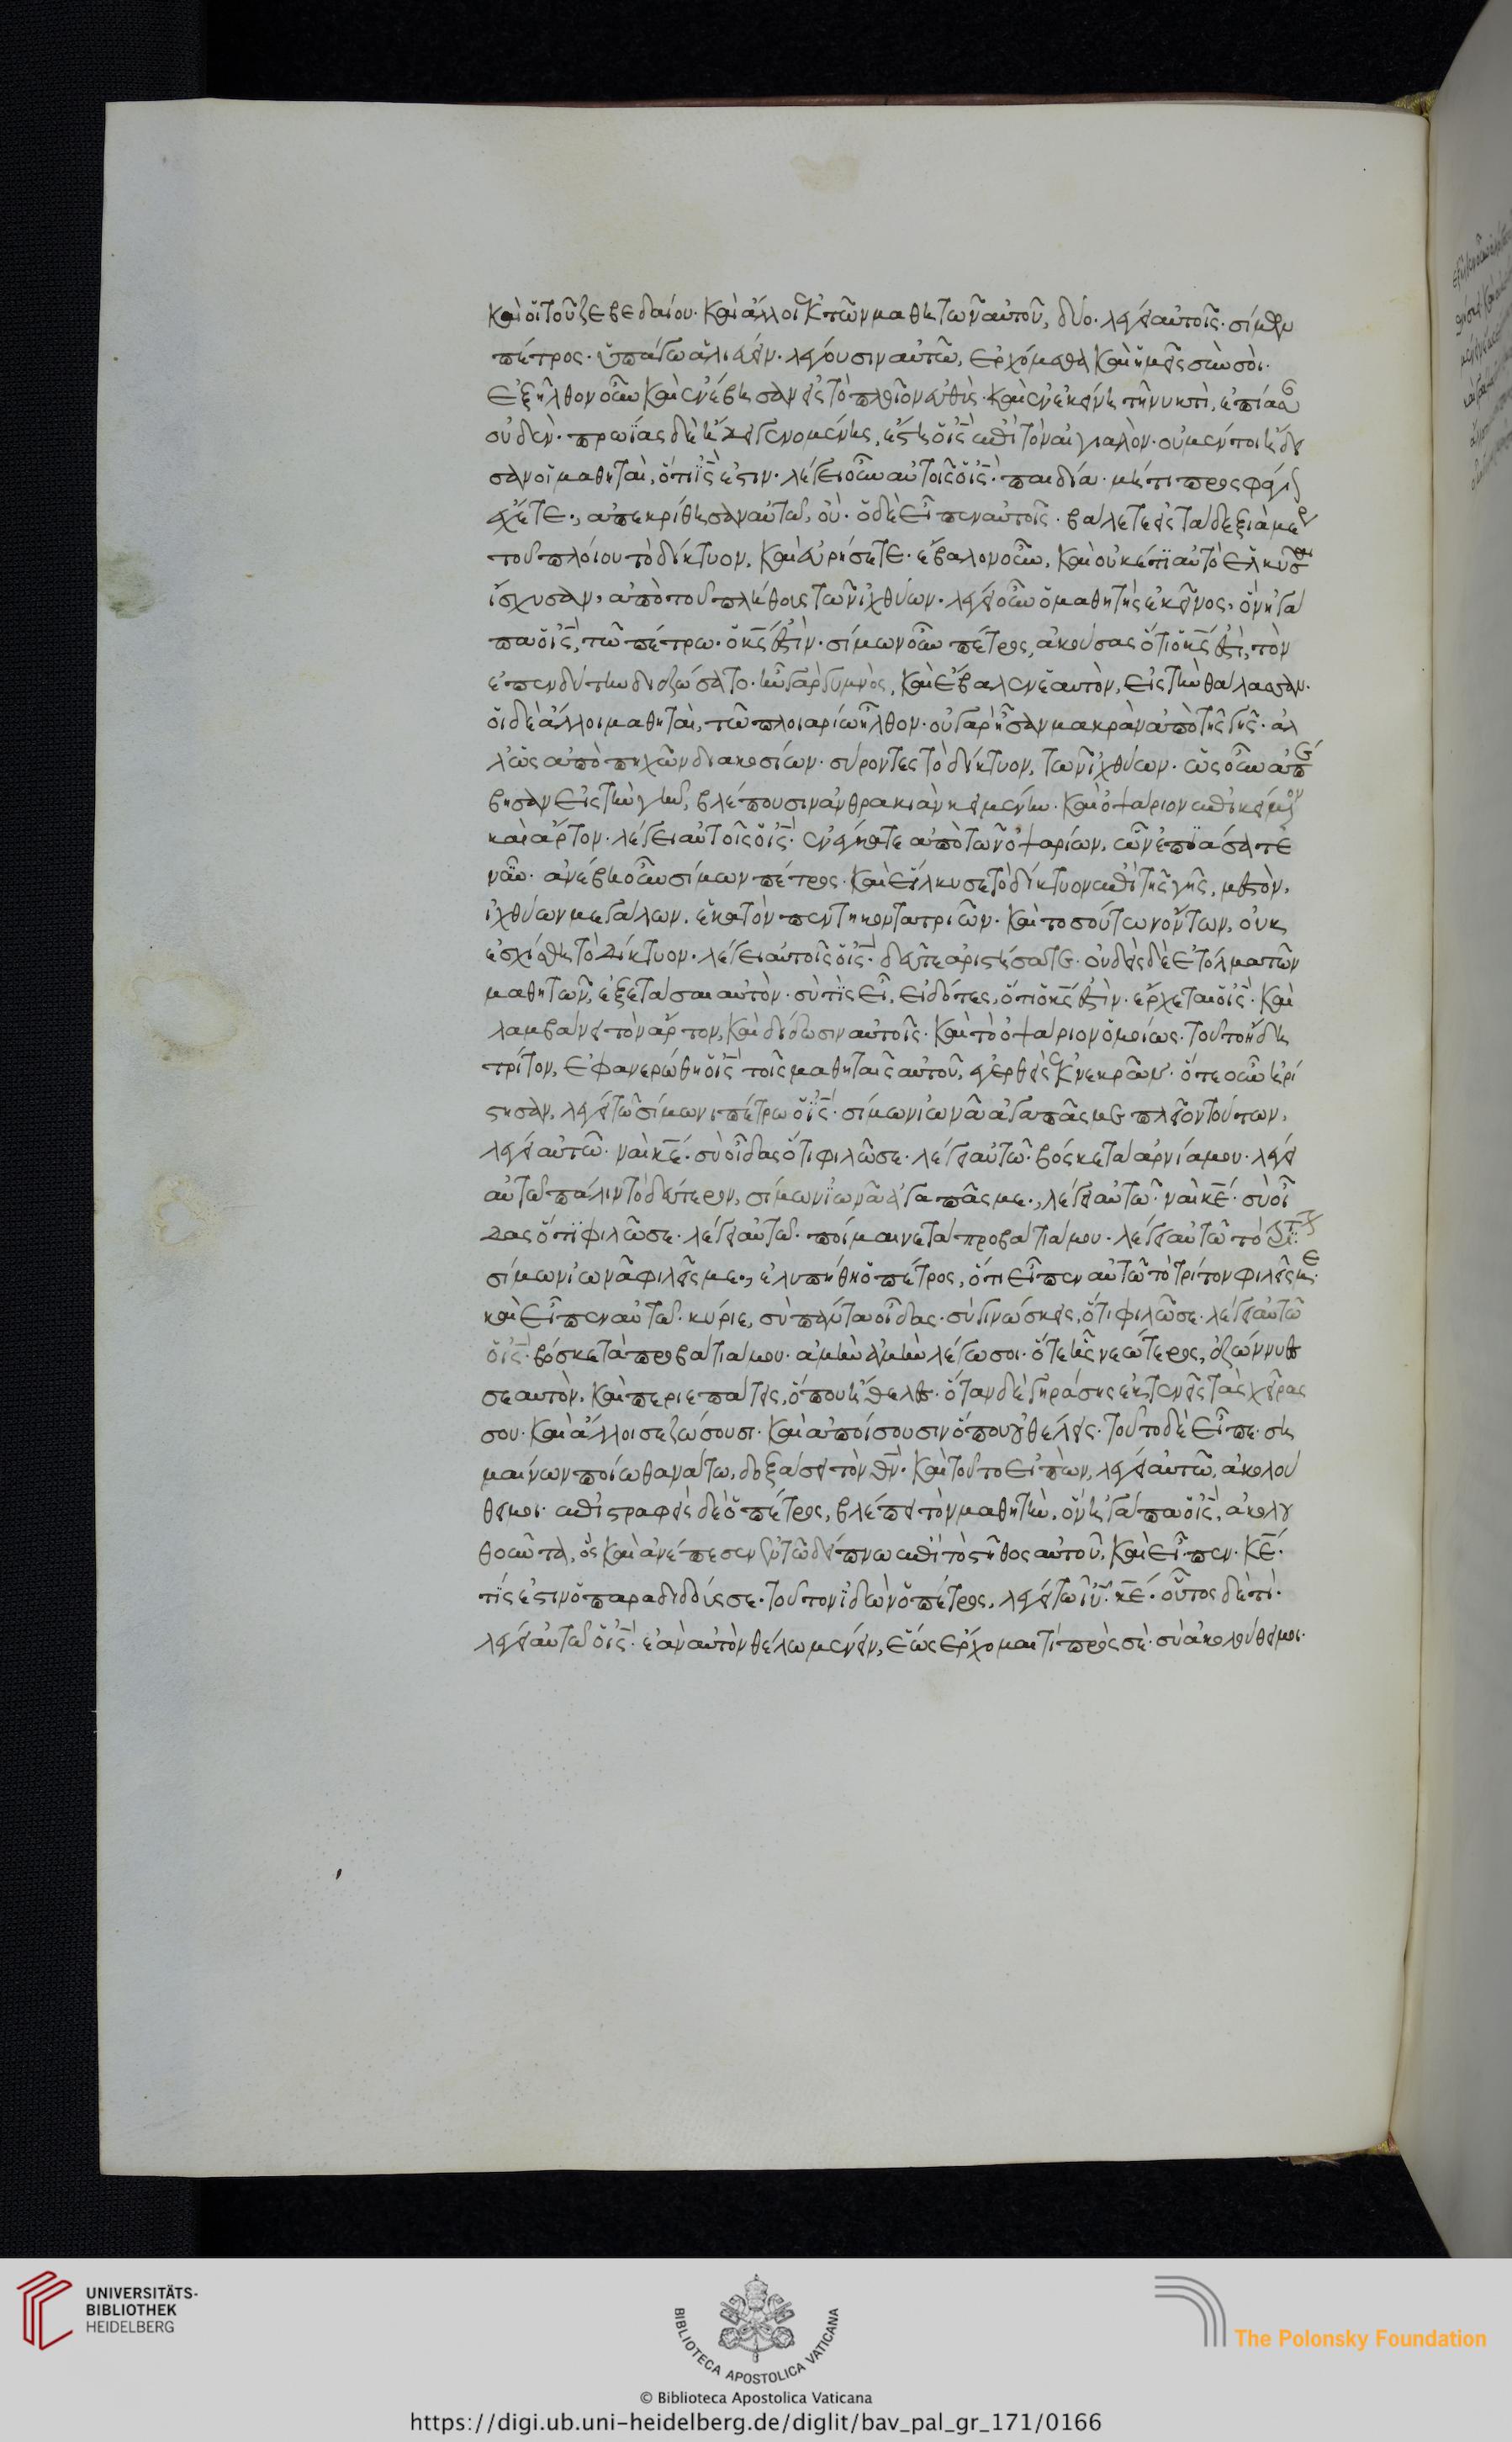 καὶ οἱ τοῦ ζεβεδαίου· καὶ ἄλλοι ἐκ τῶν μαθητῶν αὐτοῦ, δύο· λέγει αὐτοῖς· σίμων
πέτρος· ὑπάγω ἁλιεύειν· λέγουσιν αὐτῶ, ἐρχόμεθα καὶ ἡμεῖς σὺν σοί·
ἐξῆλθον οὖν καὶ ἐνέβησαν εἰς τὸ πλοῖον εὐθὺς· καὶ ἐν ἐκείνη τῆ νυκτὶ, ἐπίασαν
οὐδέν· πρωΐας δὲ ἤδη γενομένης, ἔστη ὁ ις ἐπὶ τὸν αἰγιαλὸν· οὐ μέντοι ἤδει
σαν οἱ μαθηταὶ, ὅτι ις ἐστιν· λέγει οὖν αὐτοῖς ὁ ις· παιδία· μή τι προσφάγι
ἔχετε·, ἀπεκρίθησαν αὐτῶ, οὔ· ὁ δὲ εἶπεν αὐτοῖς· βάλετε εἰς τὰ δεξιὰ μέρ
τοῦ πλοίου τὸ δίκτυον, καὶ εὑρήσετε· ἔβαλον οὖν, καὶ οὐκέτι αὐτὸ ἑλκύσαι
ἴσχυσαν, ἀπὸ τοῦ πλήθους τῶν ἰχθύων· λέγει οὖν ὁ μαθητὴς ἐκεῖνος, ὃν ἠγά
πα ὁ ις, τῶ πέτρω· ὁ κς ἐστὶν· σίμων οὖν πέτρος, ἀκούσας ὅτι ὁ κς ἐστὶ, τὸν
ἐπενδύτην διεζώσατο· ἦν γὰρ γυμνὸς, καὶ ἔβαλεν ἑαυτὸν, εἰς τὴν θάλασσαν·
οἱ δὲ ἄλλοι μαθηταὶ, τῶ πλοιαρίω ἦλθον· οὐ γὰρ ἦσαν μακρὰν ἀπὸ τῆς γῆς· ἀλ
λ ὡς ἀπὸ πηχῶν διακοσίων· σύροντες τὸ δίκτυον, τῶν ἰχθύων· ὡς οὖν ἀπέ
βησαν εἰς τὴν γῆν, βλέπουσιν ἀνθρακιὰν κειμένην· καὶ ὀψάριον ἐπικείμενον
καὶ ἄρτον· λέγει αὐτοῖς ὁ ις· ἐνέγκατε ἀπὸ τῶν ὀψαρίων, ὧν ἐπιάσατε
νῦν· ἀνέβη οὖν σίμων πέτρος· καὶ εἵλκυσε τὸ δίκτυον ἐπὶ τῆς γῆς, μεστὸν,
ἰχθύων μεγάλων, ἑκατὸν πεντήκοντα τριῶν· καὶ τοσούτων ὄντων, οὐκ
ἐσχίσθη τὸ δίκτυον· λέγει αὐτοῖς ὁ ις· δεῦτε ἀριστήσατε· οὐδεὶς δὲ ἐτόλμα τῶν
μαθητῶν, ἐξετάσαι αὐτὸν· σὺ τίς εἶ, εἰδότες, ὅτι ὁ κς ἐστὶν· ἔρχεται ὁ ις· καὶ
λαμβάνει τὸν ἄρτον, καὶ δίδωσιν αὐτοῖς· καὶ τὸ ὀψάριον ὁμοίως· τοῦτο ἤδη
τρίτον, ἐφανερώθη ὁ ις τοῖς μαθηταῖς αὐτοῦ, ἐγερθεὶς ἐκ νεκρῶν· ὅτε οὖν ἠρί
στησαν, λέγει τῶ σίμωνι πέτρω ὁ ις· σίμων ἰωνᾶ ἀγαπᾶς με πλεῖον τούτων,
λέγει αὐτῶ· ναὶ κε· σὺ οἶδας ὅτι φιλῶ σε· λέγει αὐτῶ· βόσκε τὰ ἀρνία μου· λέγει
αὐτῶ πάλιν τὸ δεύτερον, σίμων ἰωνᾶ ἀγαπᾶς με·, λέγει αὐτῶ· ναὶ κε· σὺ οἶ
δας ὅτι φιλῶ σε· λέγει αὐτῶ· ποίμαινε τὰ προβάτιά μου· λέγει αὐτῶ τὸ
σίμων ἰωνᾶ φιλεῖς με·, ἐλυπήθη ὁ πέτρος, ὅτι εἶπεν αὐτῶ τὸ τρίτον φιλεῖς με·
καὶ εἶπεν αὐτῶ· κύριε, σὺ πάντα οἶδας· σὺ γινώσκεις, ὅτι φιλῶ σε· λέγει αὐτῶ
ὁ ις· βόσκε τὰ προβάτιά μου· ἀμὴν ἀμὴν λέγω σοι· ὅτε ἦς νεώτερος, ἐζώννυες
σεαυτὸν, καὶ περιεπάτεις, ὅπου ἤθελες· ὅταν δὲ γηράσης ἐκτενεῖς τὰς χεῖρας
σου· καὶ ἄλλοι σε ζώσουσι· καὶ ἀποίσουσιν ὅπου οὐ θέλεις· τοῦτο δὲ εἶπε· ση
μαίνων ποίω θανάτω, δοξάσει τὸν θν· καὶ τοῦτο εἰπὼν, λέγει αὐτῶ, ἀκολού
θει μοι· ἐπιστραφεὶς δὲ ὁ πέτρος, βλέπει τὸν μαθητὴν, ὃν ἠγάπα ὁ ις, ἀκολου
θοῦντα, ὃς καὶ ἀνέπεσεν ἐν τῶ δείπνω ἐπὶ τὸ στῆθος αὐτοῦ, καὶ εἶπεν· κε·
τίς ἐστιν ὁ παραδιδούς σε· τοῦτον ἰδὼν ὁ πέτρος, λέγει τῶ ιυ· κε· οὗτος δὲ τί·
λέγει αὐτῶ ὁ ις· ἐὰν αὐτὸν θέλω μένειν, ἕως ἔρχομαι τί πρὸς σέ· σὺ ἀκολούθει μοι·
UNIVERSITÄTS-
BIBLIOTHEK
HEIDELBERG
BIBLIOTECA APOSTOLICA VATICANA
The Polonsky Foundation
© Biblioteca Apostolica Vaticana
https://digi.ub.uni-heidelberg.de/diglit/bav_pal_gr_171/0166